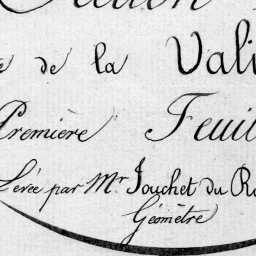 de la Vali
Première Feuil
Levée par Mr. Jouchet du R
Géomètre